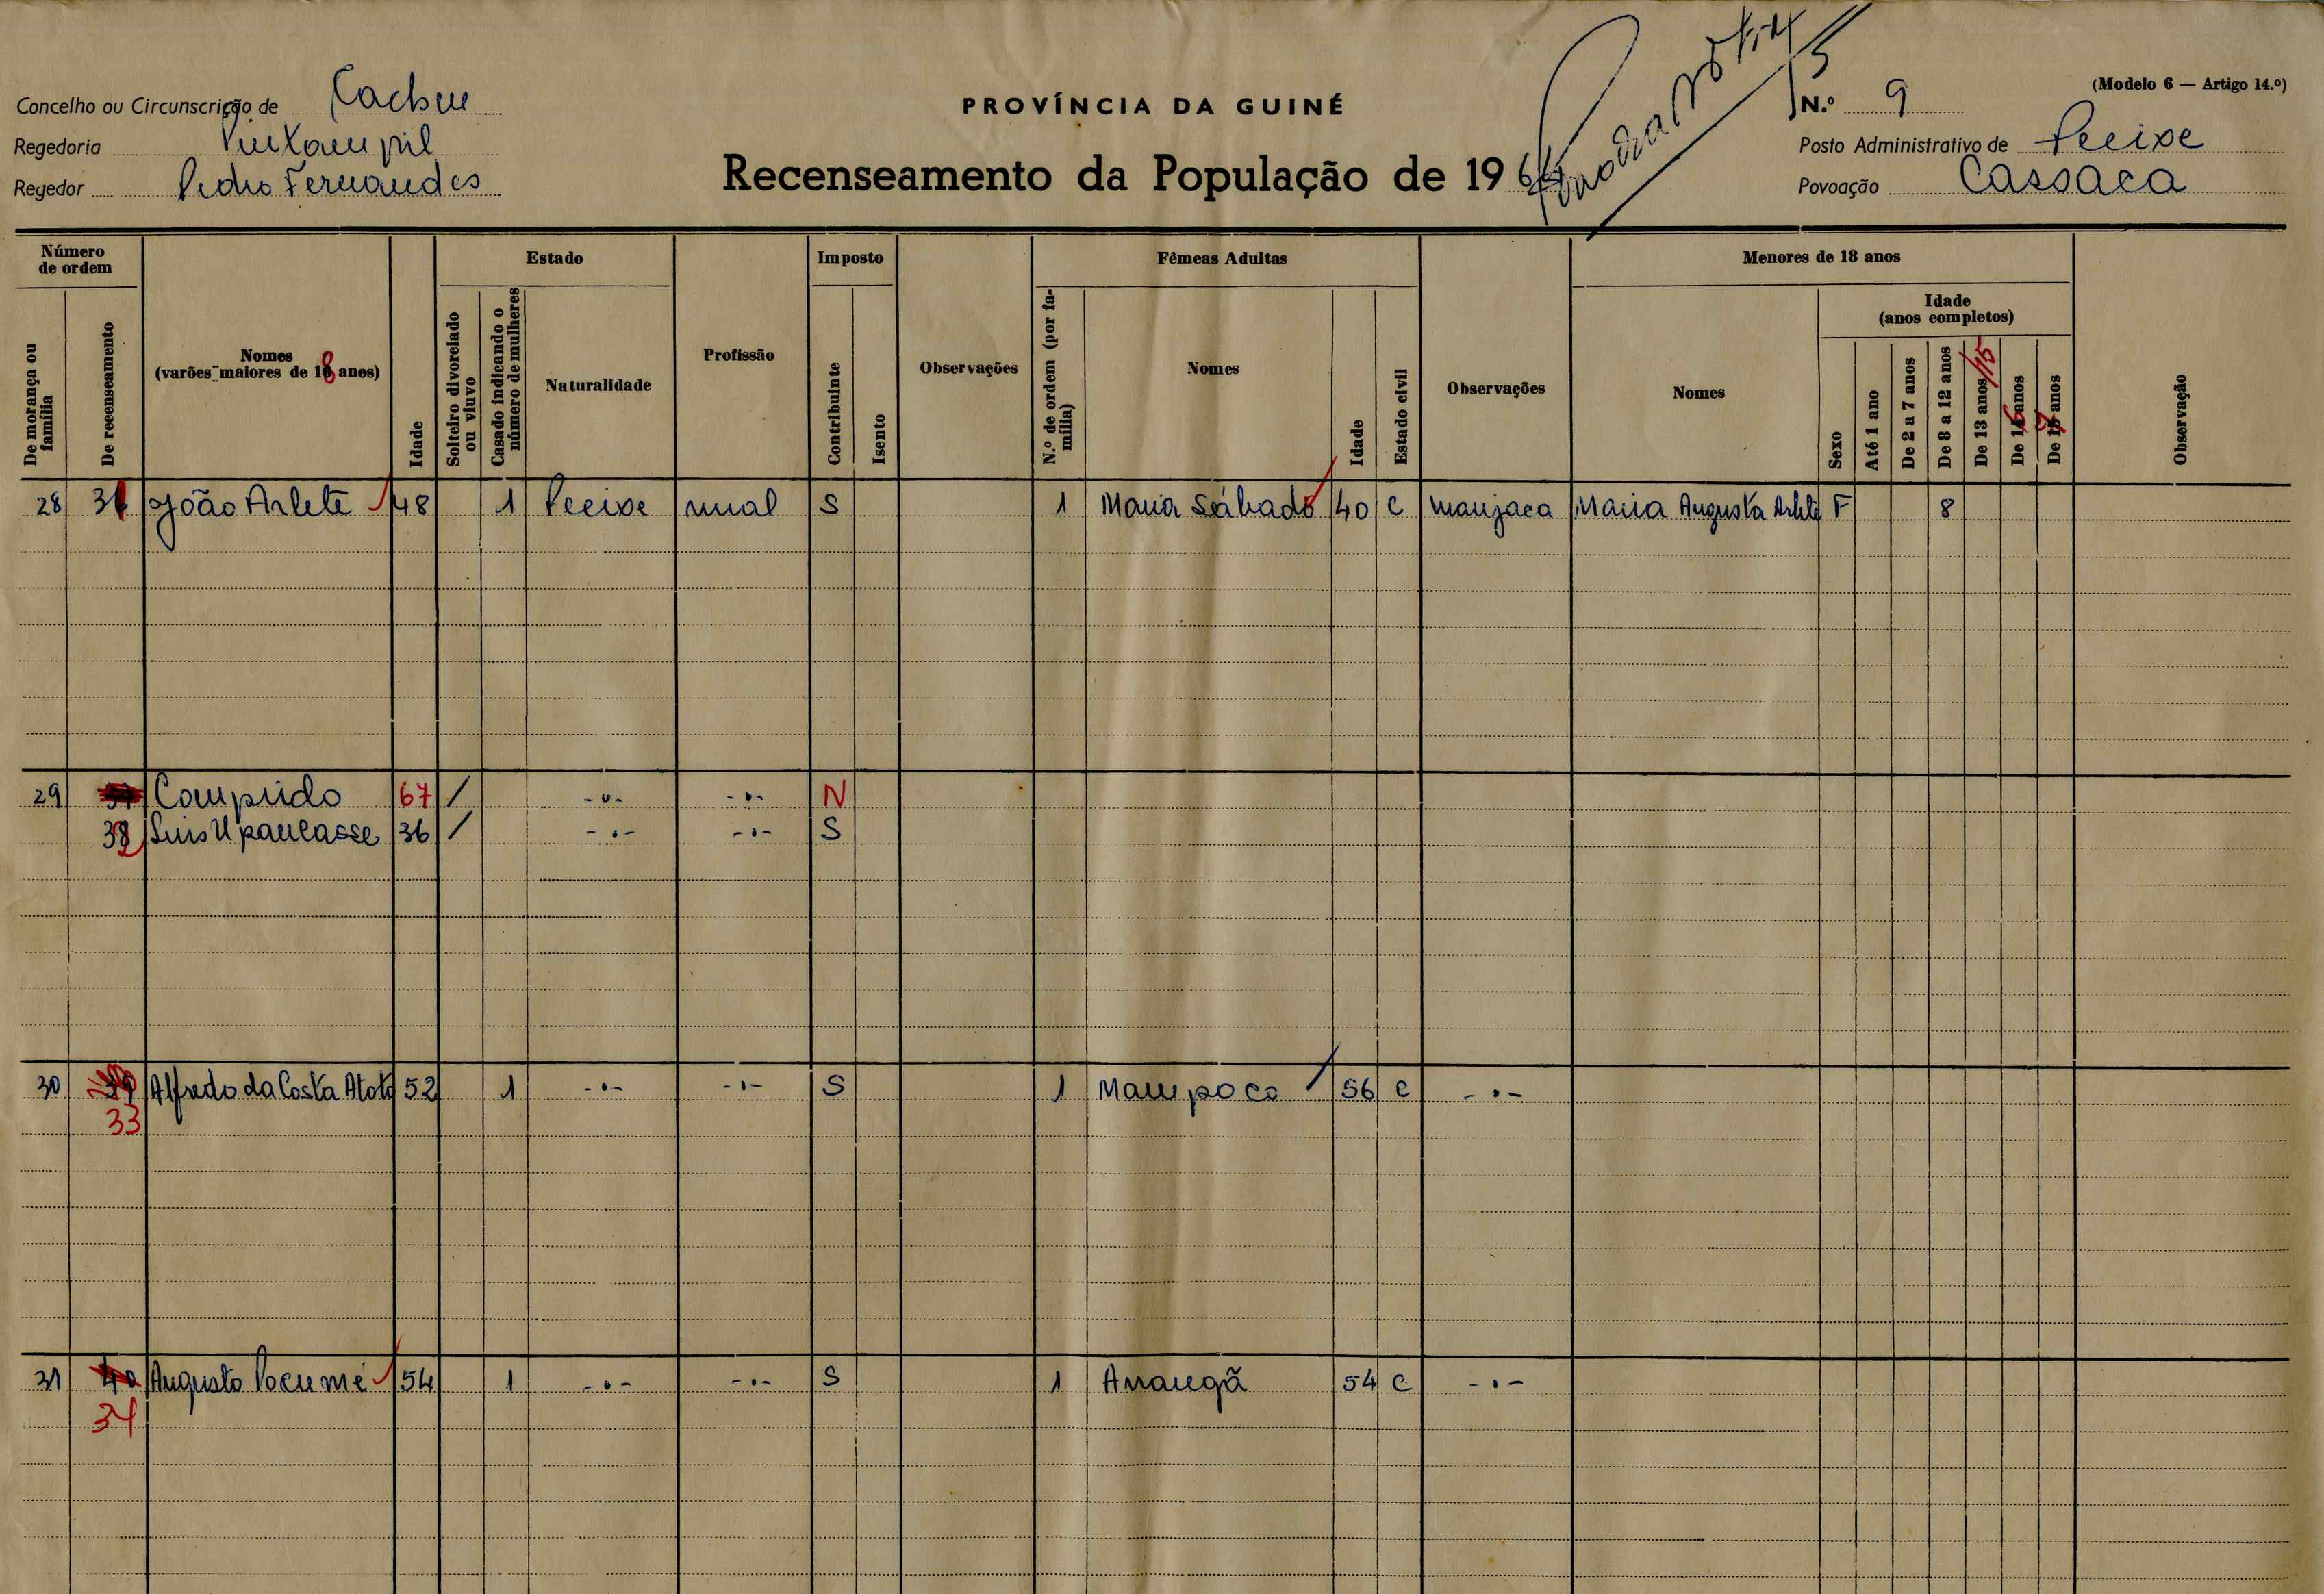 (Modelo 6 — Artigo 14.º)
Concelho ou Circunscrição de Cacheu
PROVÍNCIA DA GUINÉ
N.º 9
Regedoria
Posto Administrativo de Pecixe
Regedor Pedro Fernandes
Recenseamento da População de 19
Povoação Cassaca
Número de ordem
Estado
Imposto
Fêmeas Adultas
Menores de 18 anos
De morança ou família
De recenseamento
Nomes
(varões maiores de 18 anos)
Idade
Solteiro divorciado ou viuvo
Casado indicando o número de mulheres
Naturalidade
Profissão
Contribuinte
Isento
Observações
N.º de ordem (por família)
Nomes
Idade
Estado civil
Observações
Nomes
Sexo
Idade
(anos completos)
Até 1 ano
De 2 a 7 anos
De 8 a 12 anos
De 13 anos /15
De 16 anos
De 17 anos
Observação
28 31 João Arlete 48 1 Pecixe rural S 1 Maria Sábado 40 C manjaca Maria Augusta Arlete F 8
29 Comprido 67 / -"- -"- N
32 Luis Upaucasse 36 / -"- -"- S
30 Alfredo da Costa Atoto 52 1 -"- -"- S 1 Mampoco 56 C -"-
33
31 40 Augusto Pocumé 54 1 -"- -"- S 1 Arraugã 54 C -"-
34